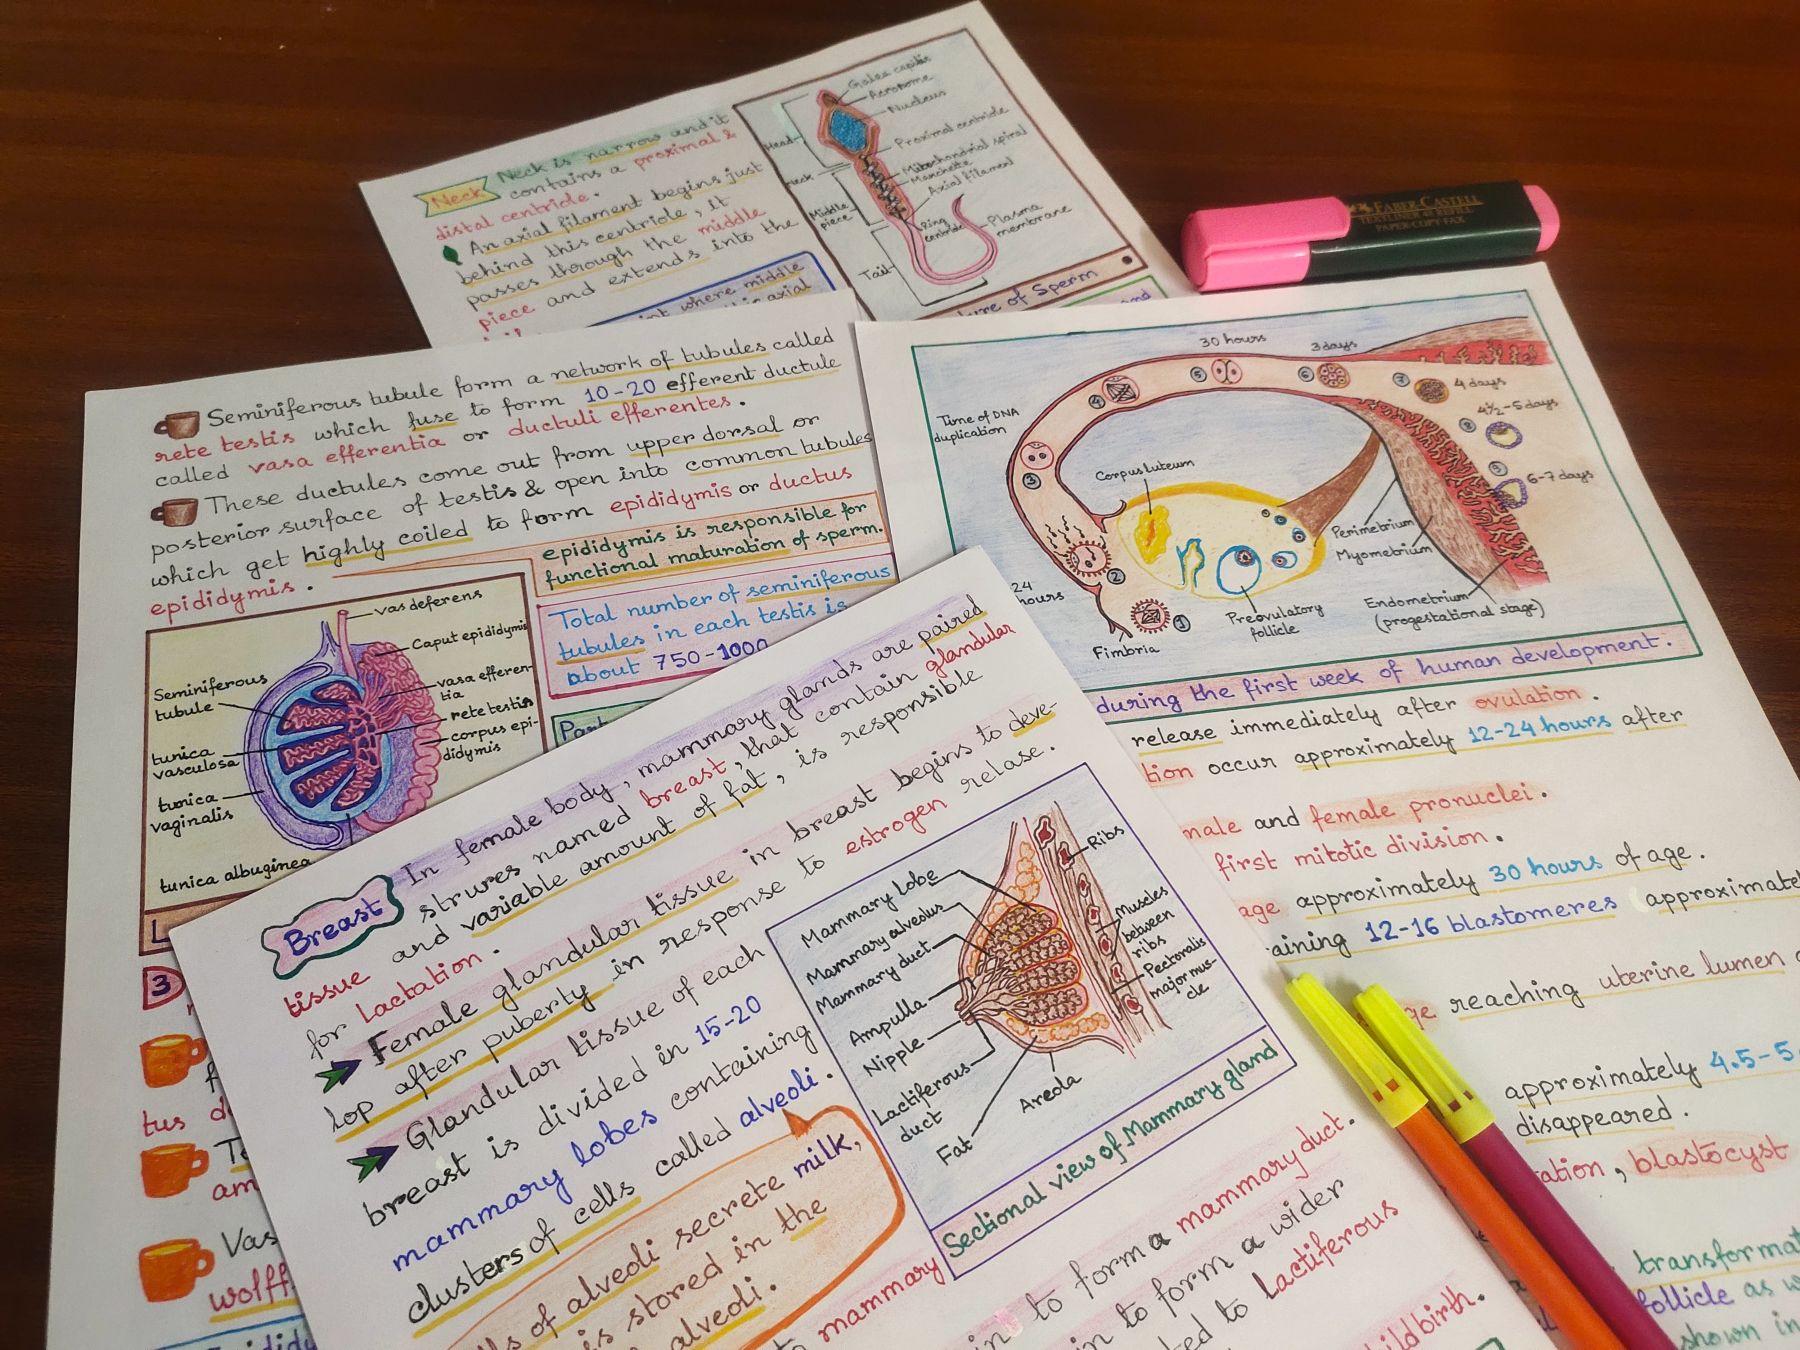 Neck
Neck is narrow and it
contains a proximal &
distal centriole.
An axial filament begins just
behind this centriole, It
passes through the middle
piece and extends into the
where middle
axial
Galea capitis
Acrosome
Nucleus
Head
Proximal centriole
Neck
Mitochondrial spiral
Manchette
Axial filament
Middle
piece
Ring
centriole
Plasma
membrane
Tail
of Sperm
and
FABER-CASTELL
TEXTLINER 48 REFILL
PAPER·COPY·FAX
Seminiferous tubule form a network of tubules called
rete testis which fuse to form 10-20 efferent ductule
called vasa efferentia or ductuli efferentes.
These ductules come out from upper dorsal or
posterior surface of testis & open into common tubules
which get highly coiled to form epididymis or ductus
epididymis.
epididymis is responsible for
functional maturation of sperm.
Total number of seminiferous
tubules in each testis is
about 750-1000
vas deferens
Caput epididymis
vasa efferen-
tia
rete testis
corpus epi-
didymis
Seminiferous
tubule
tunica
vasculosa
tunica
vaginalis
tunica albuginea
3
tus
am
Vas
wolff
30 hours
3 days
4 days
4½-5 days
6-7 days
Time of DNA
duplication
Corpus luteum
1
2
3
4
5
6
7
8
9
24
hours
Fimbria
Preovulatory
follicle
Perimetrium
Myometrium
Endometrium
(progestational stage)
during the first week of human development.
release immediately after ovulation.
tion occur approximately 12-24 hours after
male and female pronuclei.
first mitotic division.
approximately 30 hours of age.
age approximately
aining 12-16 blastomeres approximate
reaching uterine lumen
approximately 4.5-5
disappeared.
ation, blastocyst
transformat
follicle as w
shown in
Breast
In female body, mammary glands are paired
strures named breast, that contain glandular
tissue and variable amount of fat, is responsible
for Lactation.
Female glandular tissue in breast begins to deve-
lop after puberty in response to estrogen relase.
Glandular tissue of each
breast is divided in 15-20
mammary lobes containing
clusters of cells called alveoli.
of alveoli secrete milk,
is stored in the
alveoli.
Mammary lobe
Mammary alveolus
Mammary duct
Ampulla
Nipple
Lactiferous
duct
Fat
Areola
Ribs
Muscles
between
ribs
Pectoralis
major mus-
cle
Sectional view of Mammary gland
mammary
to form a mammary duct.
in to form a wider
to Lactiferous
childbirth.